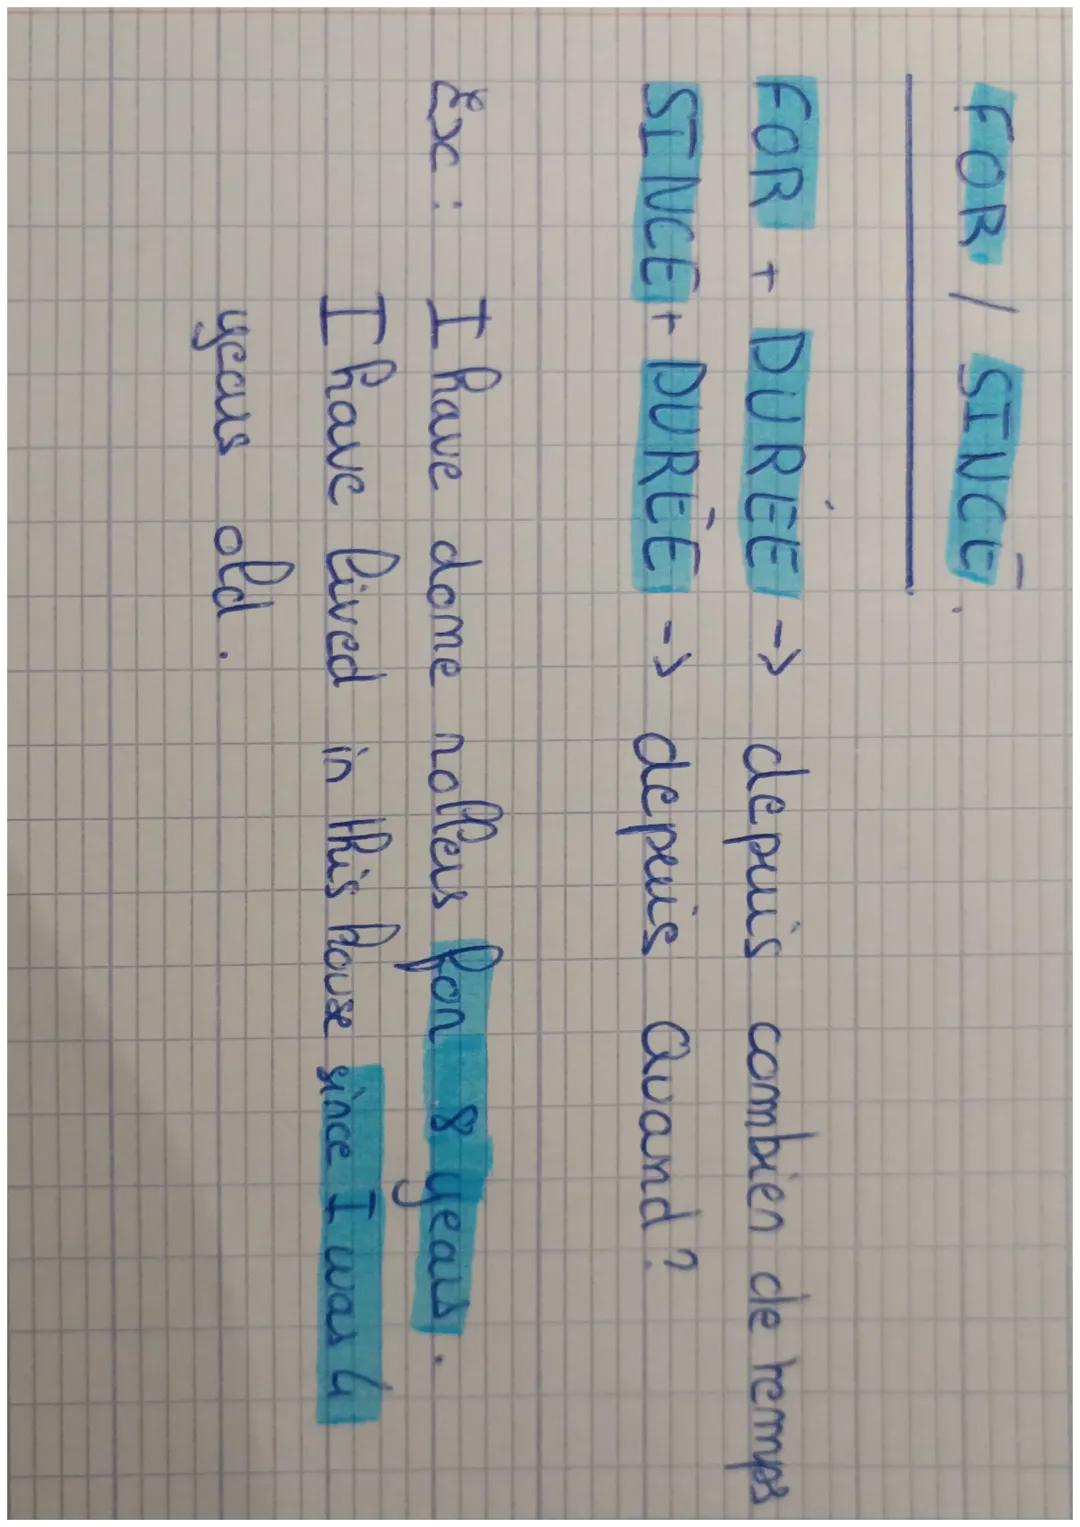 FOR / SINCE.
FOR + DURÉE -> depuis combien de temps
SINCE + DURÉE -> depuis Quand ?
Ex : I have done rollers for 8 years.
I have lived in this house since I was 4
years old.